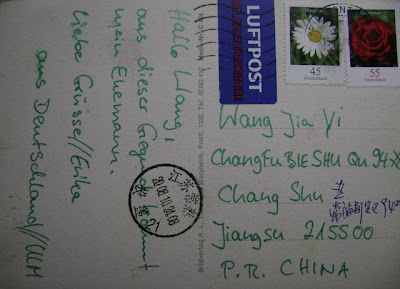 Hallo Wang,
aus dieser Gegend kommt
mein Ehemann.
Liebe Grüsse//Erika
aus Deutschland//ULM
LUFTPOST
PAR AVION PRIORITAIRE
45
Deutschland
55
Deutschland
Wang Jia Yi
CHANGFU BIE SHU QU
Chang Shu
Jiangsu 215500
P.R. CHINA
江苏常熟